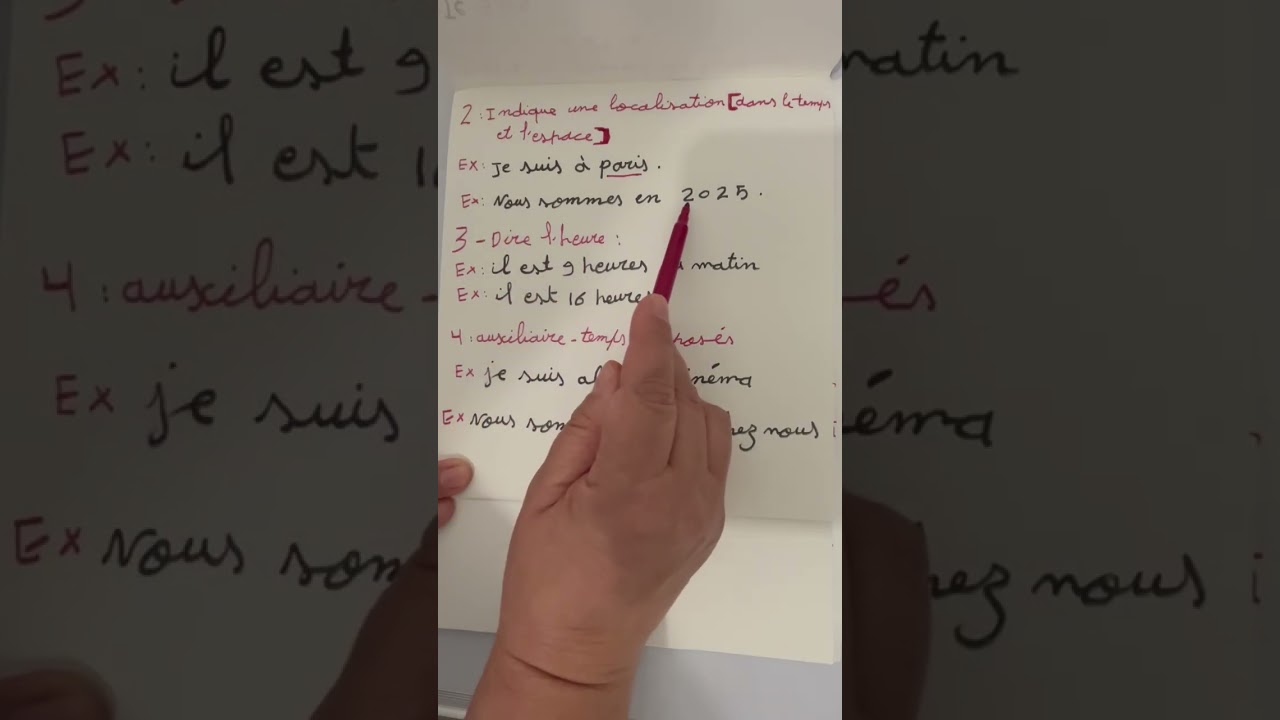 2 : Indique une localisation [dans le temps
et l'espace]
Ex : Je suis à paris .
Ex : Nous sommes en 2025 .
3 - Dire l'heure :
Ex : il est 9 heures matin
Ex : il est 16 heures
4 : auxiliaire - temps
Ex je suis
Ex Nous nous